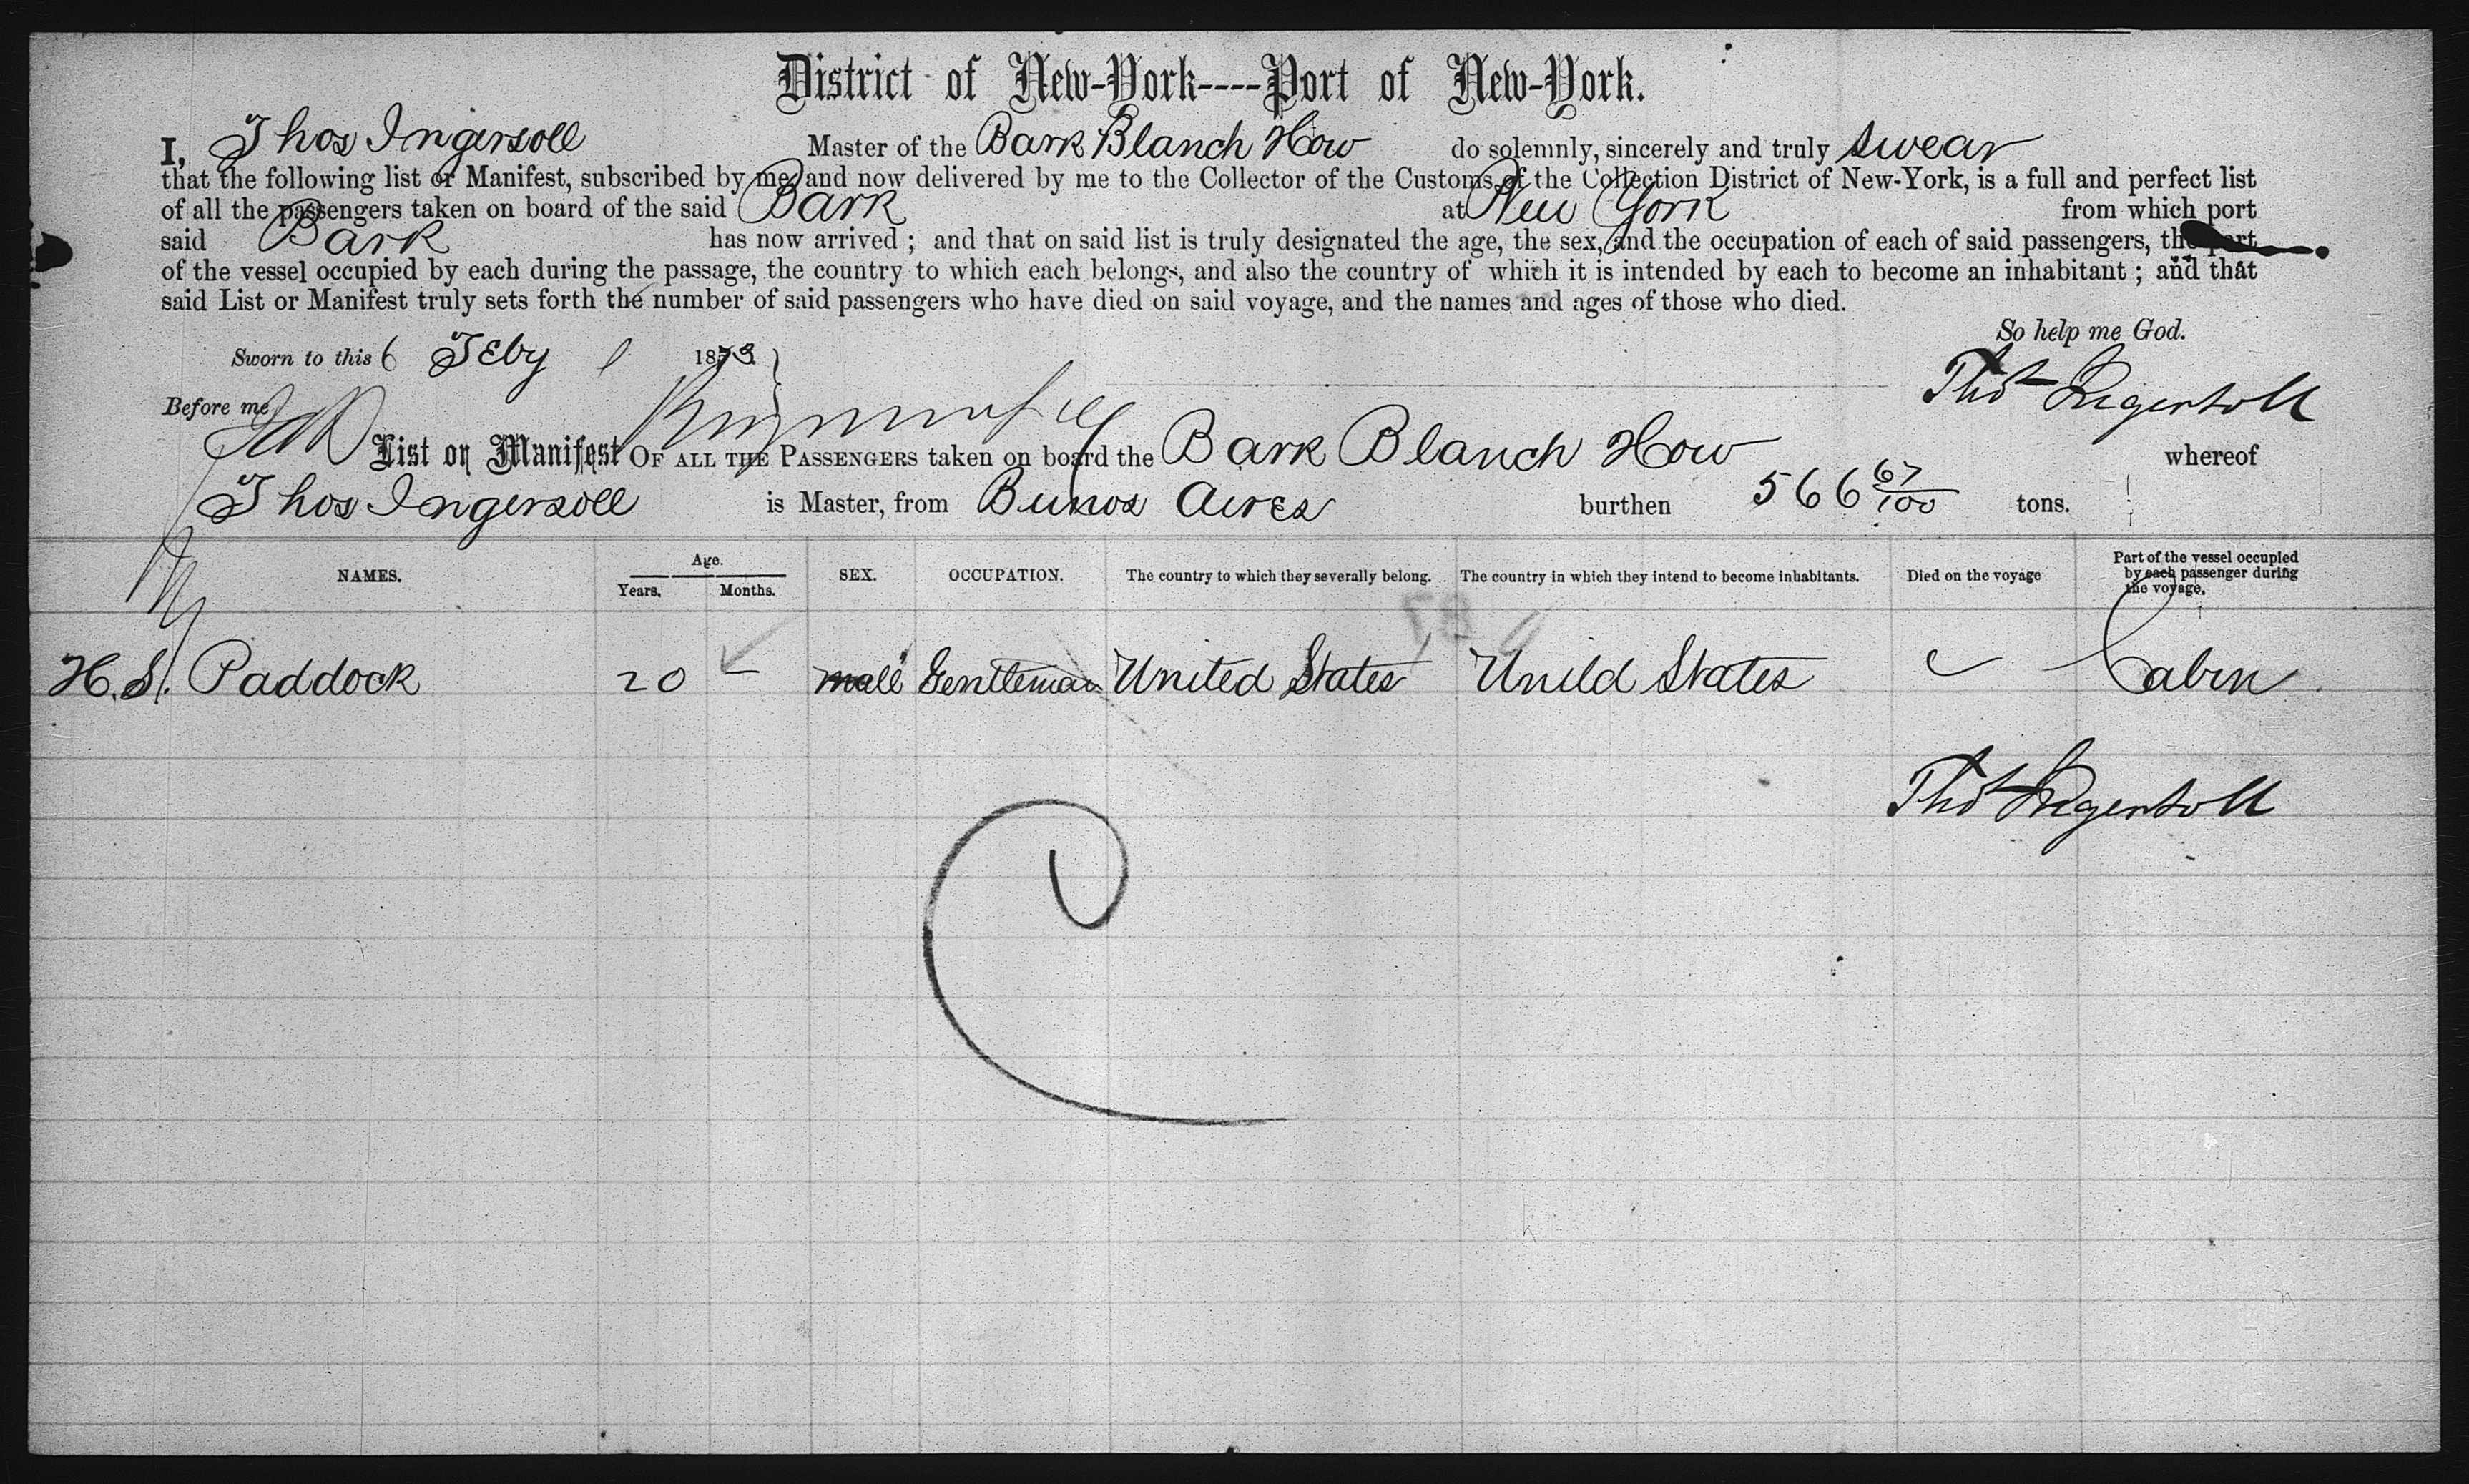 District of New-York----Port of New-York.
I, Thos Ingersoll Master of the Bark Blanch How do solemnly, sincerely and truly swear
that the following list or Manifest, subscribed by me and now delivered by me to the Collector of the Customs of the Collection District of New-York, is a full and perfect list
of all the passengers taken on board of the said Bark at New York from which port
said Bark has now arrived ; and that on said list is truly designated the age, the sex, and the occupation of each of said passengers, the part
of the vessel occupied by each during the passage, the country to which each belongs, and also the country of which it is intended by each to become an inhabitant ; and that
said List or Manifest truly sets forth the number of said passengers who have died on said voyage, and the names and ages of those who died.
So help me God.
Sworn to this 6 Feby 1873
Thos Ingersoll
Before me
List or Manifest OF ALL THE PASSENGERS taken on board the Bark Blanch How whereof
Thos Ingersoll is Master, from Bunos Aires burthen 566 67/100 tons.
NAMES. Age. Years. Months. SEX. OCCUPATION. The country to which they severally belong. The country in which they intend to become inhabitants. Died on the voyage Part of the vessel occupied by each passenger during the voyage.
H. S. Paddock 20 - male Gentleman United States Unild States Cabin
Thos Ingersoll